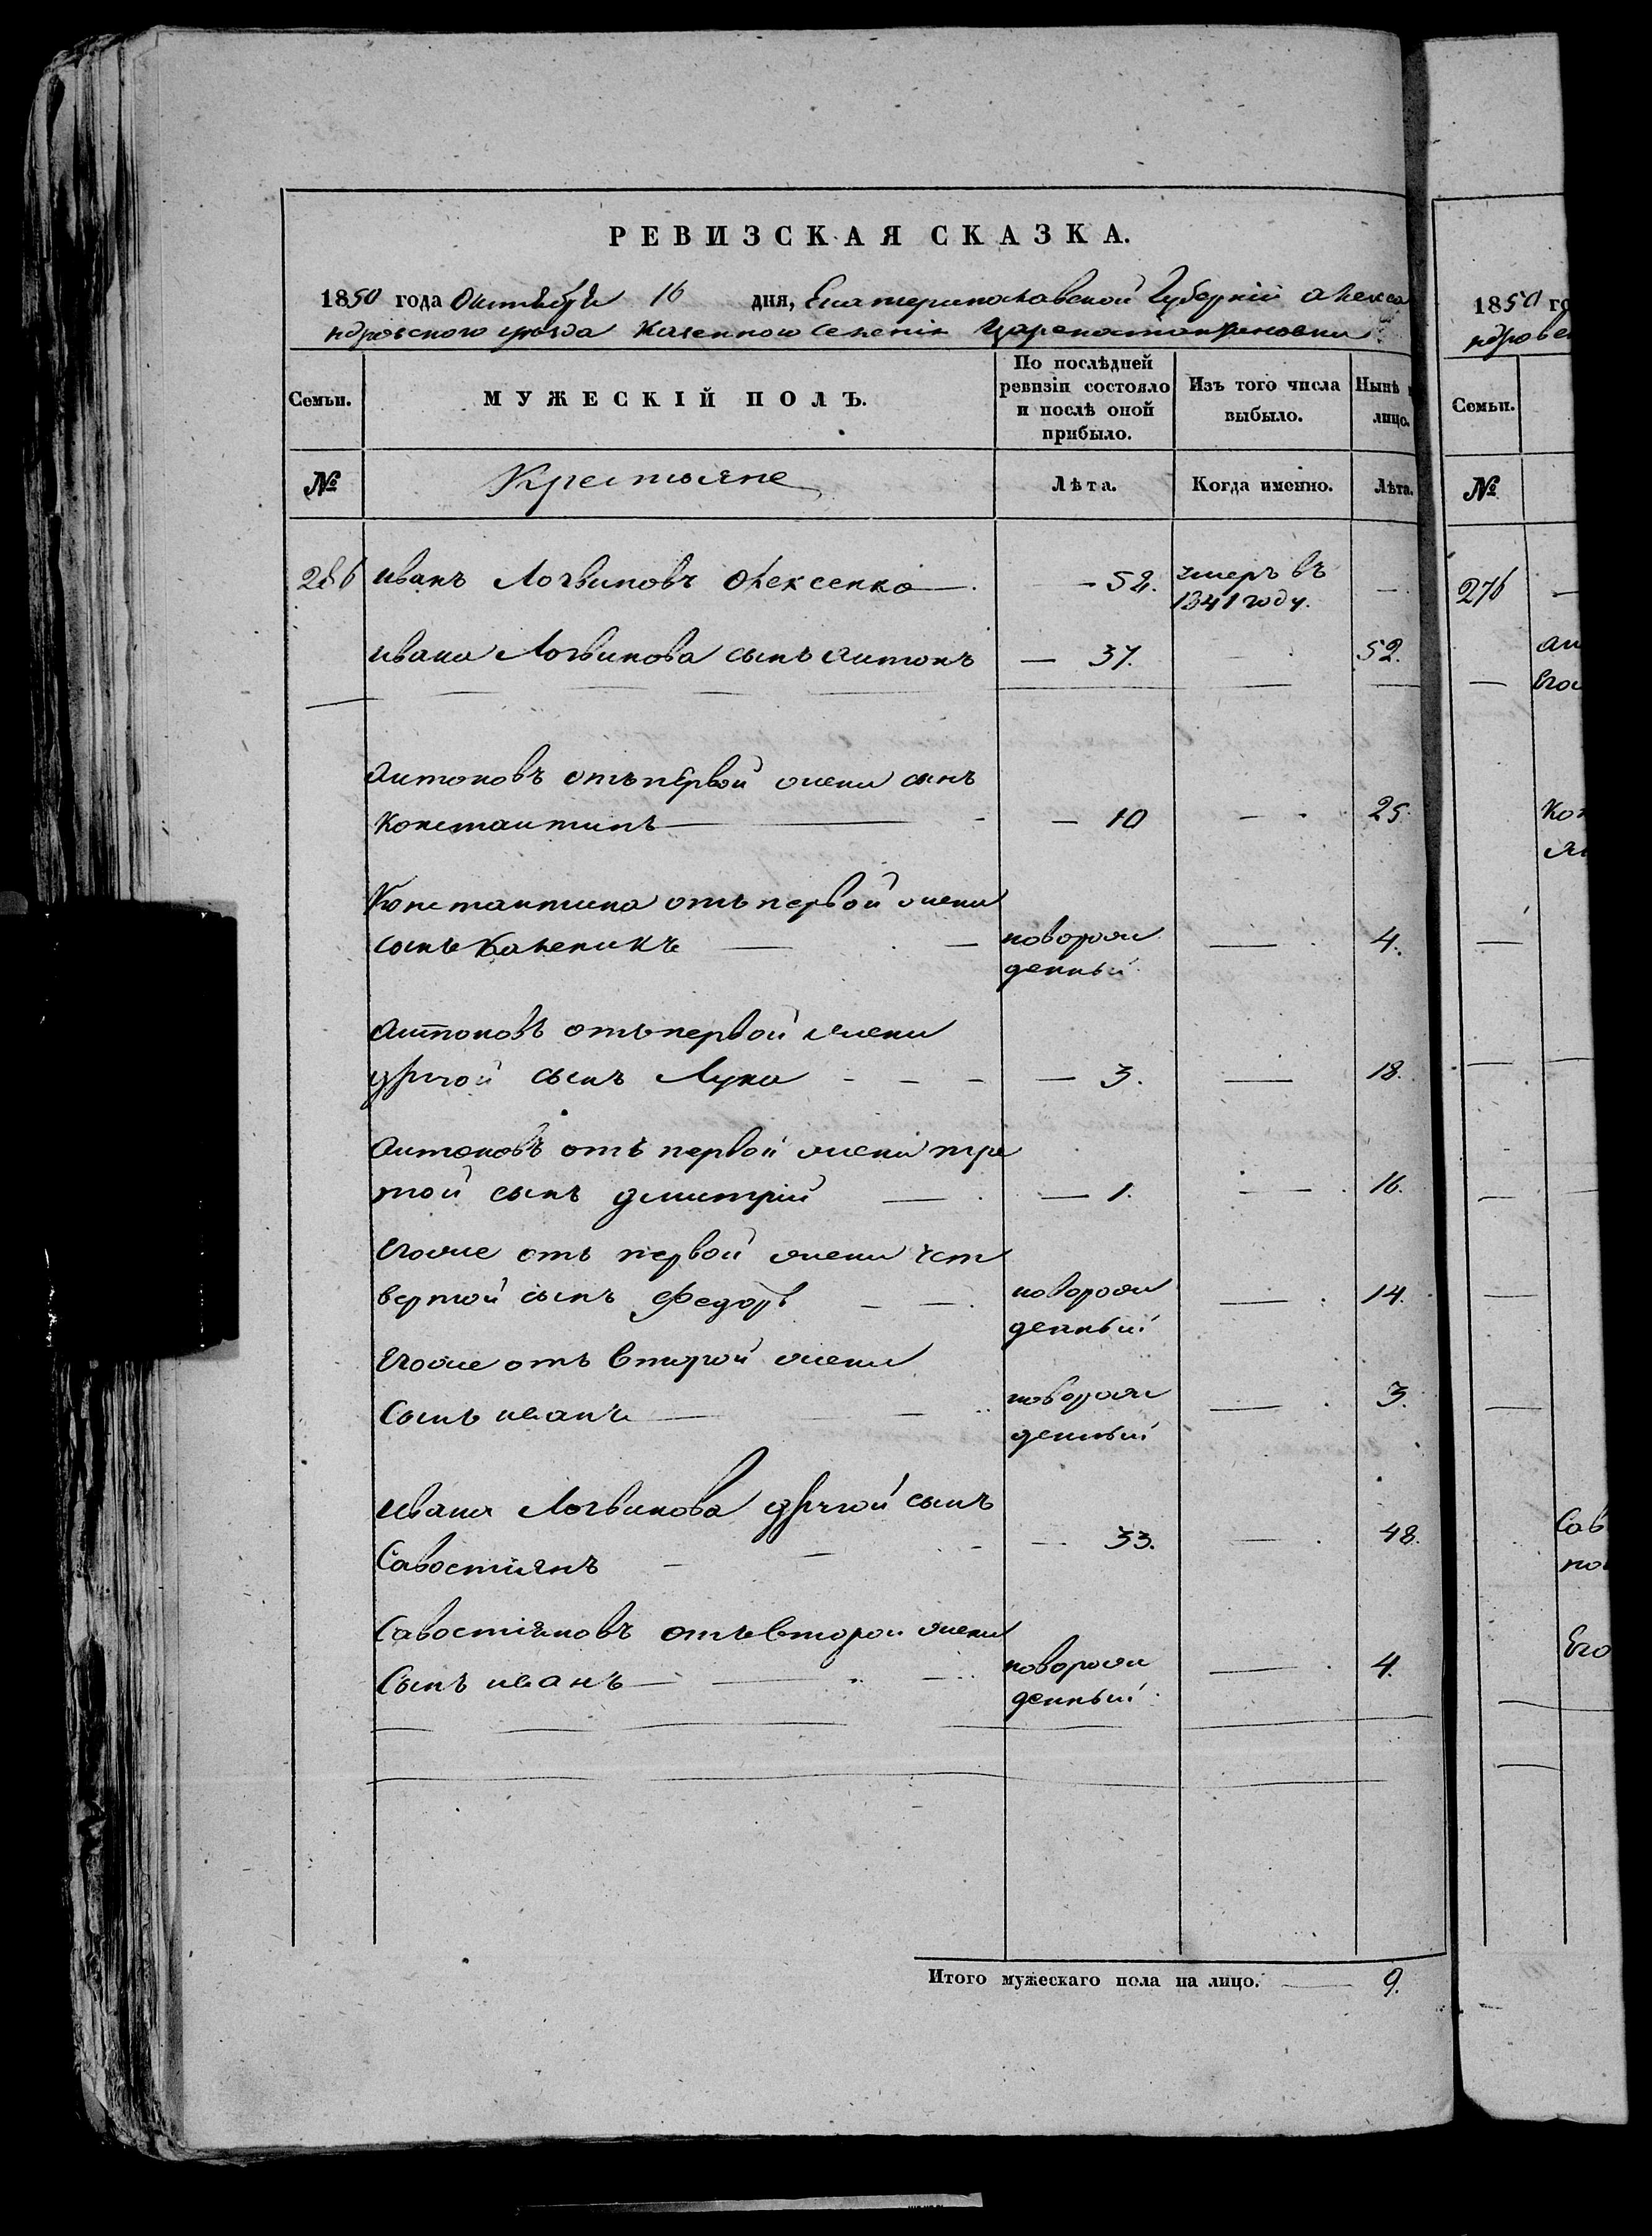 РЕВИЗСКАЯ СКАЗКА.
1850 года Октября 16 дня, Екатеринославской Губерніи Алекса
ндровского уезда Казенного Селенія Цареконстантиновки
Семьи. МУЖЕСКІЙ ПОЛЪ. По послѣдней ревизіи состояло и послѣ оной прибыло. Изъ того числа выбыло. Нынѣ лицо.
№ Крестьяне Лѣта. Когда именно. Лѣта.
Иванъ Логвиновъ Олексенко — 52. умеръ въ 1841 году. —
Ивана Логвинова сынъ Антонъ — 37. — 52.
Антоновъ отъ первой жены сынъ
Константинъ — 10 — 25.
Константина отъ первой жены
сынъ Каленикъ — новорож
денный — 4.
Антоновъ отъ первой жены
другой сынъ Лука — 3. — 18.
Антоновъ отъ первой жены тре
той сынъ Димитрій — 1. — 16.
Егоже отъ первой жены чет
вертой сынъ Федоръ — новорож
денный — 14.
Егоже отъ второй жены
сынъ Иванъ — новорож
денный — 3.
Ивана Логвинова другой сынъ
Савостиянъ — 33. — 48.
Савостіяновъ отъ второй жены
сынъ Иванъ — новорож
денный — 4.
Итого мужескаго пола на лицо. — 9.
1850 го
ндровс
Семьи.
№
276
Ан
Его
Кон
Сав
Его